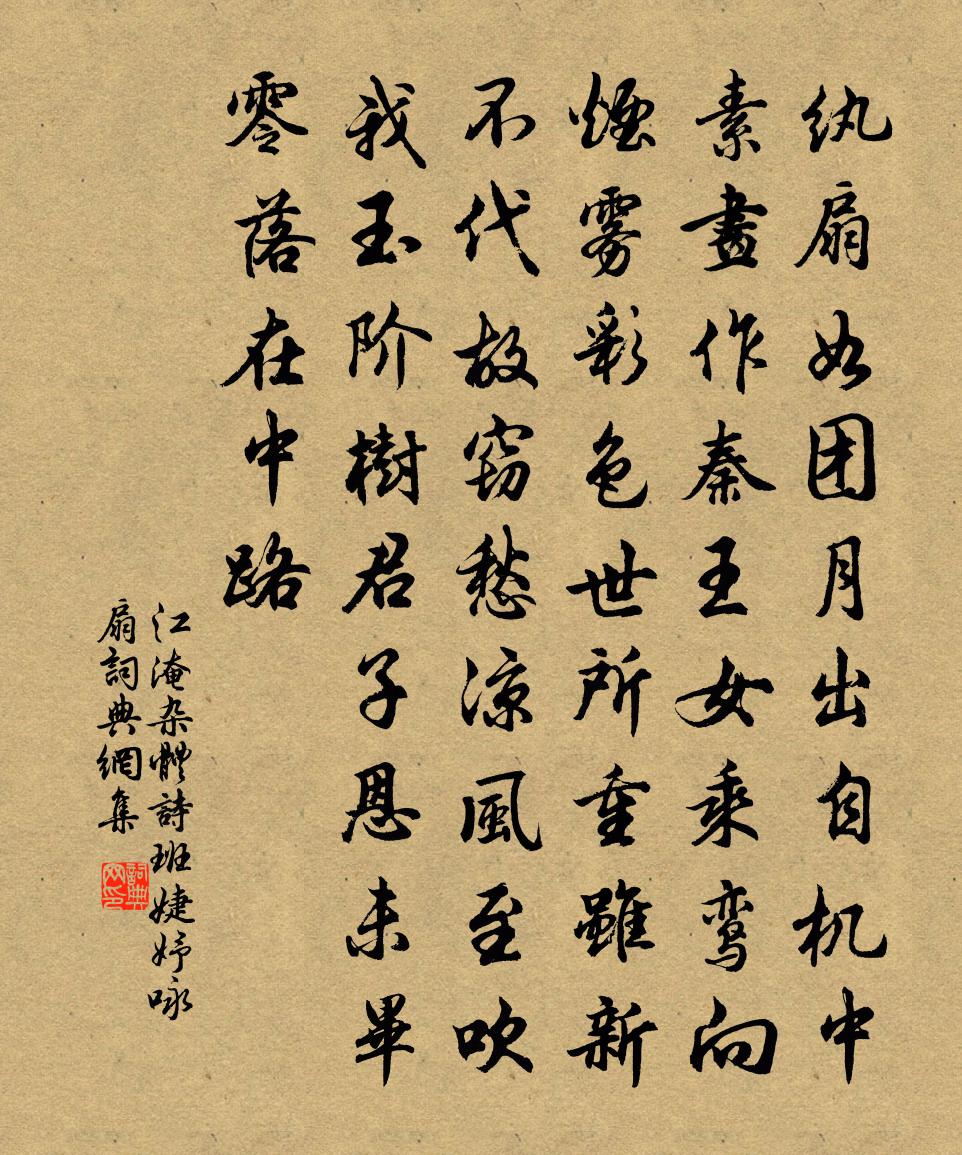 纨扇如团月出自机中
素畫作秦王女乘鸾向
煙雾彩色世所重雖新
不代故窃愁涼風至吹
我玉阶樹君子恩未畢
零落在中路
江淹杂體詩班婕妤咏
扇詞典網集
詞典网印